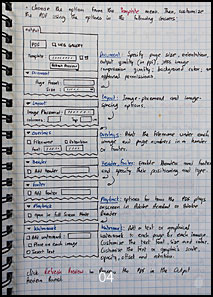 • Choose the option from the Template menu. Then, customize
the PDF using the options in the following panels.
Output
PDF WEB GALLERY
Template
Refresh Preview
▼ Document
Page Preset:
Size:
Document: Specify page size, orientation,
quality (in ppi), JPEG image
compression quality, background color
permissions
▼ Layout
Image Placement
Columns: Top:
Layout: Image-placement and image-
spacing options.
▼ Overlays
Filename Extension
Font:
Overlays: Print the filename under each
image and page numbers in a header
or footer.
▼ Header
Add Header
Header, footer: Enable headers and footers
and specify their positioning and type
▼ Footer
Add Footer
▼ Playback
Open in Full Screen Mode
Playback: options for how the PDF plays
onscreen in Adobe Reader
▼ Watermark
Add watermark
Place on each image
Insert Text
Watermark: Add a text or graphical
watermark to each page or each image.
Customize the text font, size and color.
Customize the text or graphic's scale,
opacity, offset and rotation.
Click Refresh Preview to preview the PDF in the Output
04